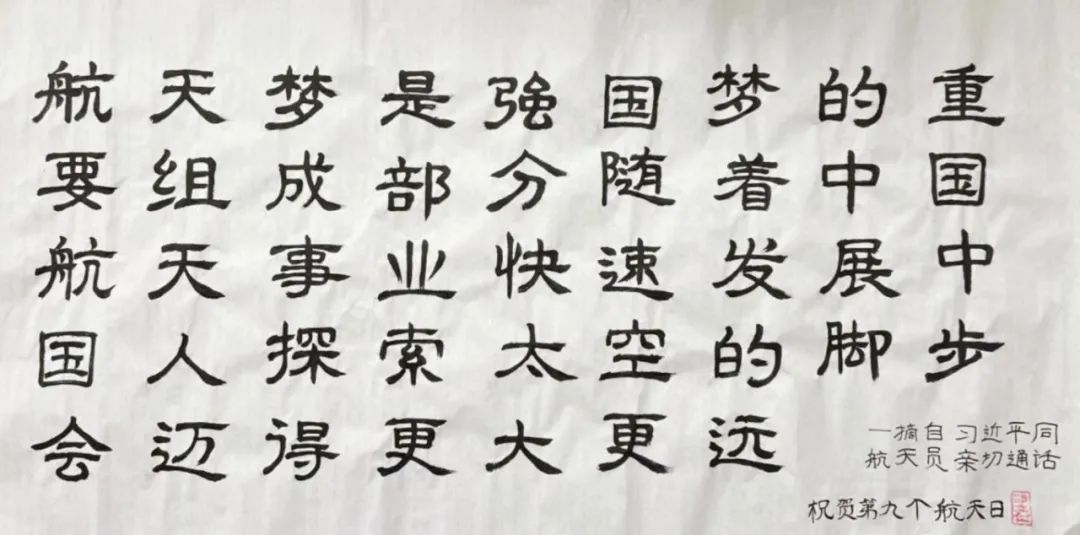 航天梦是强国梦的重
要组成部分随着中国
航天事业快速发展中
国人探索太空的脚步
会迈得更大更远
一摘自习近平同
航天员亲切通话
祝贺第九个航天日